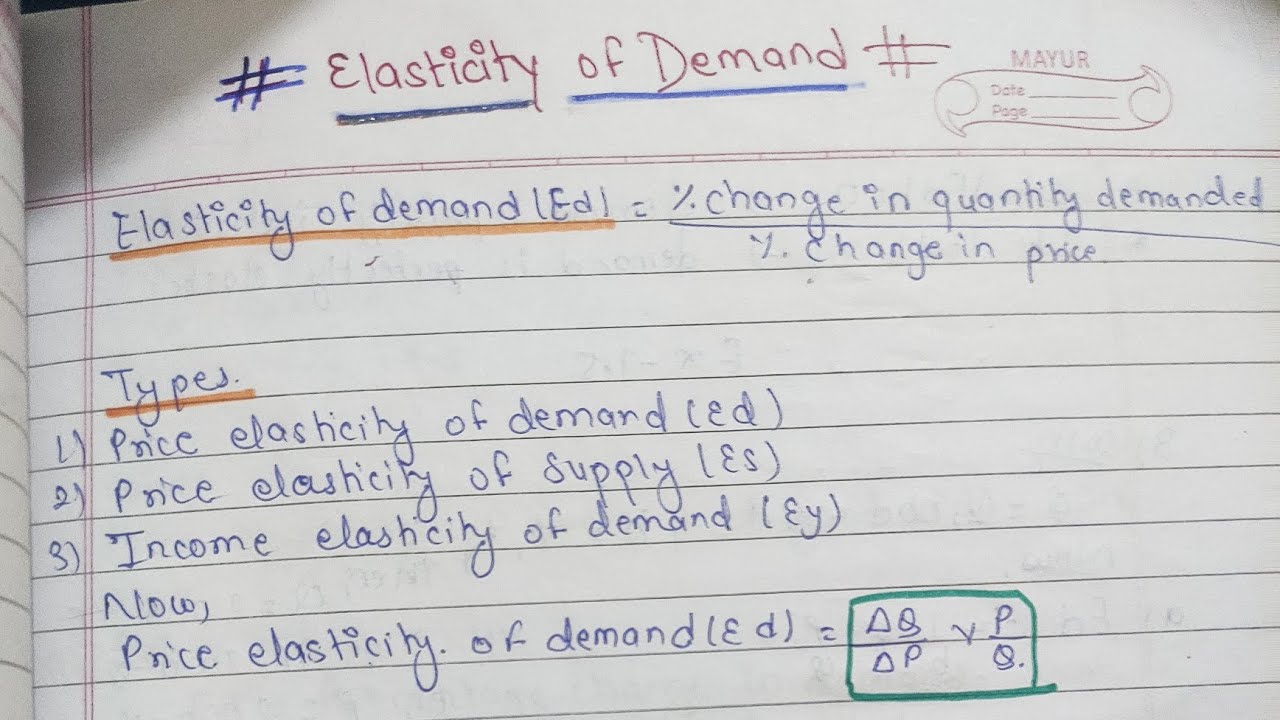 # Elasticity of Demand #
MAYUR
Date
Page
Elasticity of demand (Ed) = % change in quantity demanded
% change in price.
Types.
1) Price elasticity of demand (Ed)
2) Price elasticity of supply (Es)
3) Income elasticity of demand (Ey)
Now,
Price elasticity. of demand (Ed) = ΔQ/ΔP × P/Q.